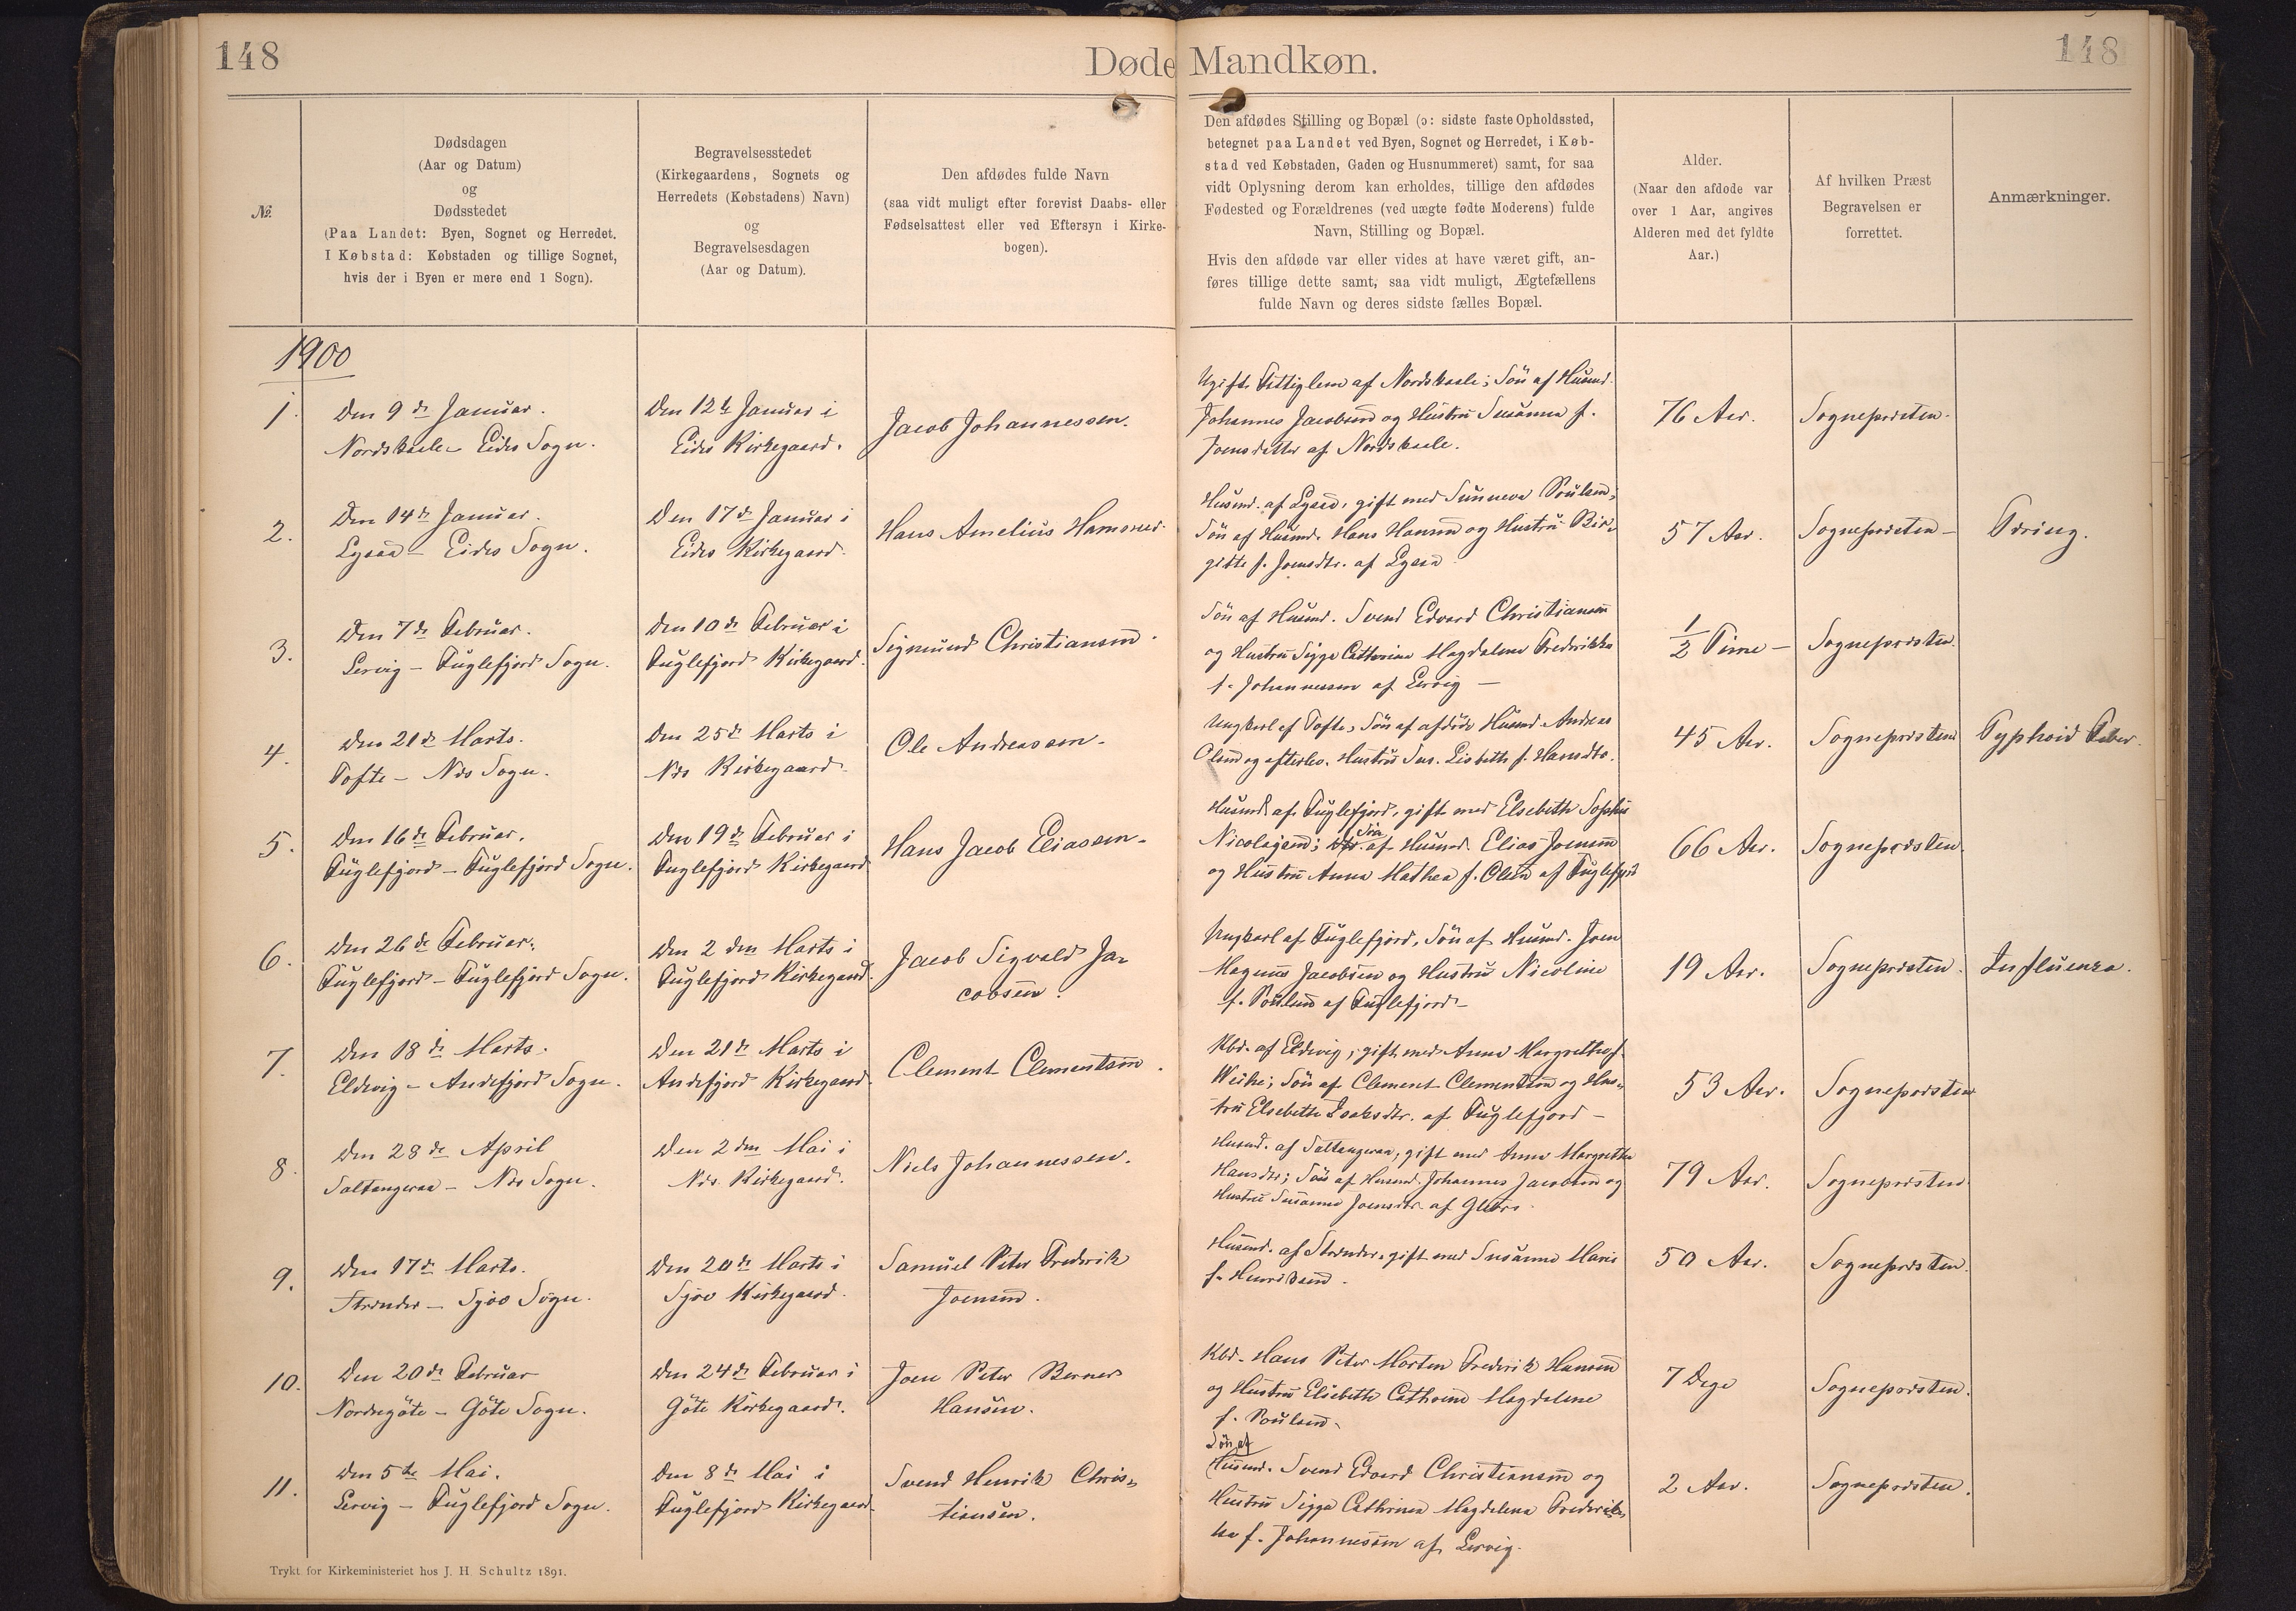 148
Døde Mandkøn.
148
№
Dødsdagen
(Aar og Datum)
og
Dødsstedet
(Paa Landet: Byen, Sognet og Herredet.
I Købstad: Købstaden og tillige Sognet,
hvis der i Byen er mere end 1 Sogn).
Begravelsesstedet
(Kirkegaardens, Sognets og
Herredets (Købstadens) Navn)
og
Begravelsesdagen
(Aar og Datum).
Den afdødes fulde Navn
(saa vidt muligt efter forevist Daabs- eller
Fødselsattest eller ved Eftersyn i Kirke-
bogen).
Den afdødes Stilling og Bopæl (ɔ: sidste faste Opholdssted,
betegnet paa Landet ved Byen, Sognet og Herredet, i Køb-
stad ved Købstaden, Gaden og Husnummeret) samt, for saa
vidt Oplysning derom kan erholdes, tillige den afdødes
Fødested og Forældrenes (ved uægte fødte Moderens) fulde
Navn, Stilling og Bopæl.
Hvis den afdøde var eller vides at have været gift, an-
føres tillige dette samt, saa vidt muligt, Ægtefællens
fulde Navn og deres sidste fælles Bopæl.
Alder.
(Naar den afdøde var
over 1 Aar, angives
Alderen med det fyldte
Aar.)
Af hvilken Præst
Begravelsen er
forrettet.
Anmærkninger.
1900
1.
Den 9de Januar.
Nordskaale – Eides Sogn.
Den 12te Januar i
Eides Kirkegaard.
Jacob Johannessen.
Ugift Fattiglem af Nordskaale; Søn af Husmd.
Johannes Jacobsen og Hustru Susanna f.
Joensdatter af Nordskaale.
76 Aar.
Sognepræsten.
2.
Den 14de Januar.
Lyaaa – Eides Sogn.
Den 17de Januar i
Eides Kirkegaard.
Hans Amelius Hansen
Husmd. af gift med Sunneva Poulsen;
Søn af Husmd. Hans Hansen og Hustru Bir-
gitte f. Joensdtr. af
57 Aar.
Sognepræsten –
Tæring.
3.
Den 7de Februar.
Lervig – Fuglefjord Sogn.
Den 10de Februar i
Fuglefjord Kirkegaard.
Sigmund Christiansen.
Søn af Husmd. Svend Edvard Christiansen
og Hustru Sigga Cathrine Magdalene Frederikke
f. Johannessen af Lervig –
1/2 Time –
Sognepræsten.
4.
Den 21de Marts.
Tofte – Næs Sogn.
Den 25de Marts i
Næs Kirkegaard.
Ole Andreassen.
Ungkarl af Tofte, Søn af afdøde Husmd. Andreas
Olsen og efterlev. Hustru Sus. Lisbeth f. Hansdtr.
45 Aar.
Sognepræsten
Typhoid Feber.
5.
Den 16de Februar.
Fuglefjord – Fuglefjord Sogn.
Den 19de Februar i
Fuglefjord Kirkegaard
Hans Jacob Eliasen.
Husmd. af Fuglefjord, gift med Elsebeth Sophie
Nicolajsen; Søn af Husmd. Elias Joensen
og Hustru Anna Mathea f. Olsen af Fuglefjord
66 Aar.
Sognepræsten.
6.
Den 26de Februar.
Fuglefjord – Fuglefjord Sogn.
Den 2den Marts i
Fuglefjord Kirkegaard.
Jacob Sigvald Ja-
cobsen.
Ungkarl af Fuglefjord, Søn af Husmd. Joen
Magnus Jacobsen og Hustru Nicoline
f. Poulsen af Fuglefjord –
19 Aar.
Sognepræsten.
Influenza.
7.
Den 18de Marts.
Eldevig – Andefjord Sogn.
Den 21de Marts i
Andefjord Kirkegaard.
Clement Clementsen.
Kbd. af Eldevig, gift med Anna Margrethe f.
Weihe; Søn af Clement Clementsen og Hus-
tru Elsebeth Isaksdtr. af Fuglefjord –
53 Aar.
Sognepræsten
8.
Den 28de April
Saltangeraa – Næs Sogn.
Den 2den Mai i
Næs Kirkegaard.
Niels Johannessen.
Husmd. af Saltangeraa, gift med Anna Margrethe
Hansdtr; Søn af Husmd. Johannes Jacobsen og
Hustru Susanna Joensdtr. af
79 Aar.
Sognepræsten
9.
Den 17de Marts.
Strænder – Sjov Sogn.
Den 20de Marts i
Sjov Kirkegaard.
Samuel Peter Frederik
Joensen.
Husmd. af Strænder, gift med Susanna Marie
f. Henriksen.
50 Aar.
Sognepræsten.
10.
Den 20de Februar
Nordregöte – Göte Sogn.
Den 24de Februar i
Göte Kirkegaard.
Joen Peter Berner
Hansen.
Kbd. Hans Peter Morten Frederik Hansen
og Hustru Elsebeth Cathrine Magdalene
f. Poulsen.
7 Dage
Sognepræsten.
11.
Den 5te Mai.
Lervig – Fuglefjord Sogn.
Den 8de Mai i
Fuglefjord Kirkegaard.
Svend Henrik Chris-
tiansen.
Søn af
Husmd. Svend Edvard Christiansen og
Hustru Sigga Cathrina Magdalena Frederik-
ka f. Johannessen af Lervig.
2 Aar.
Sognepræsten.
Trykt for Kirkeministeriet hos J. H. Schultz 1891.